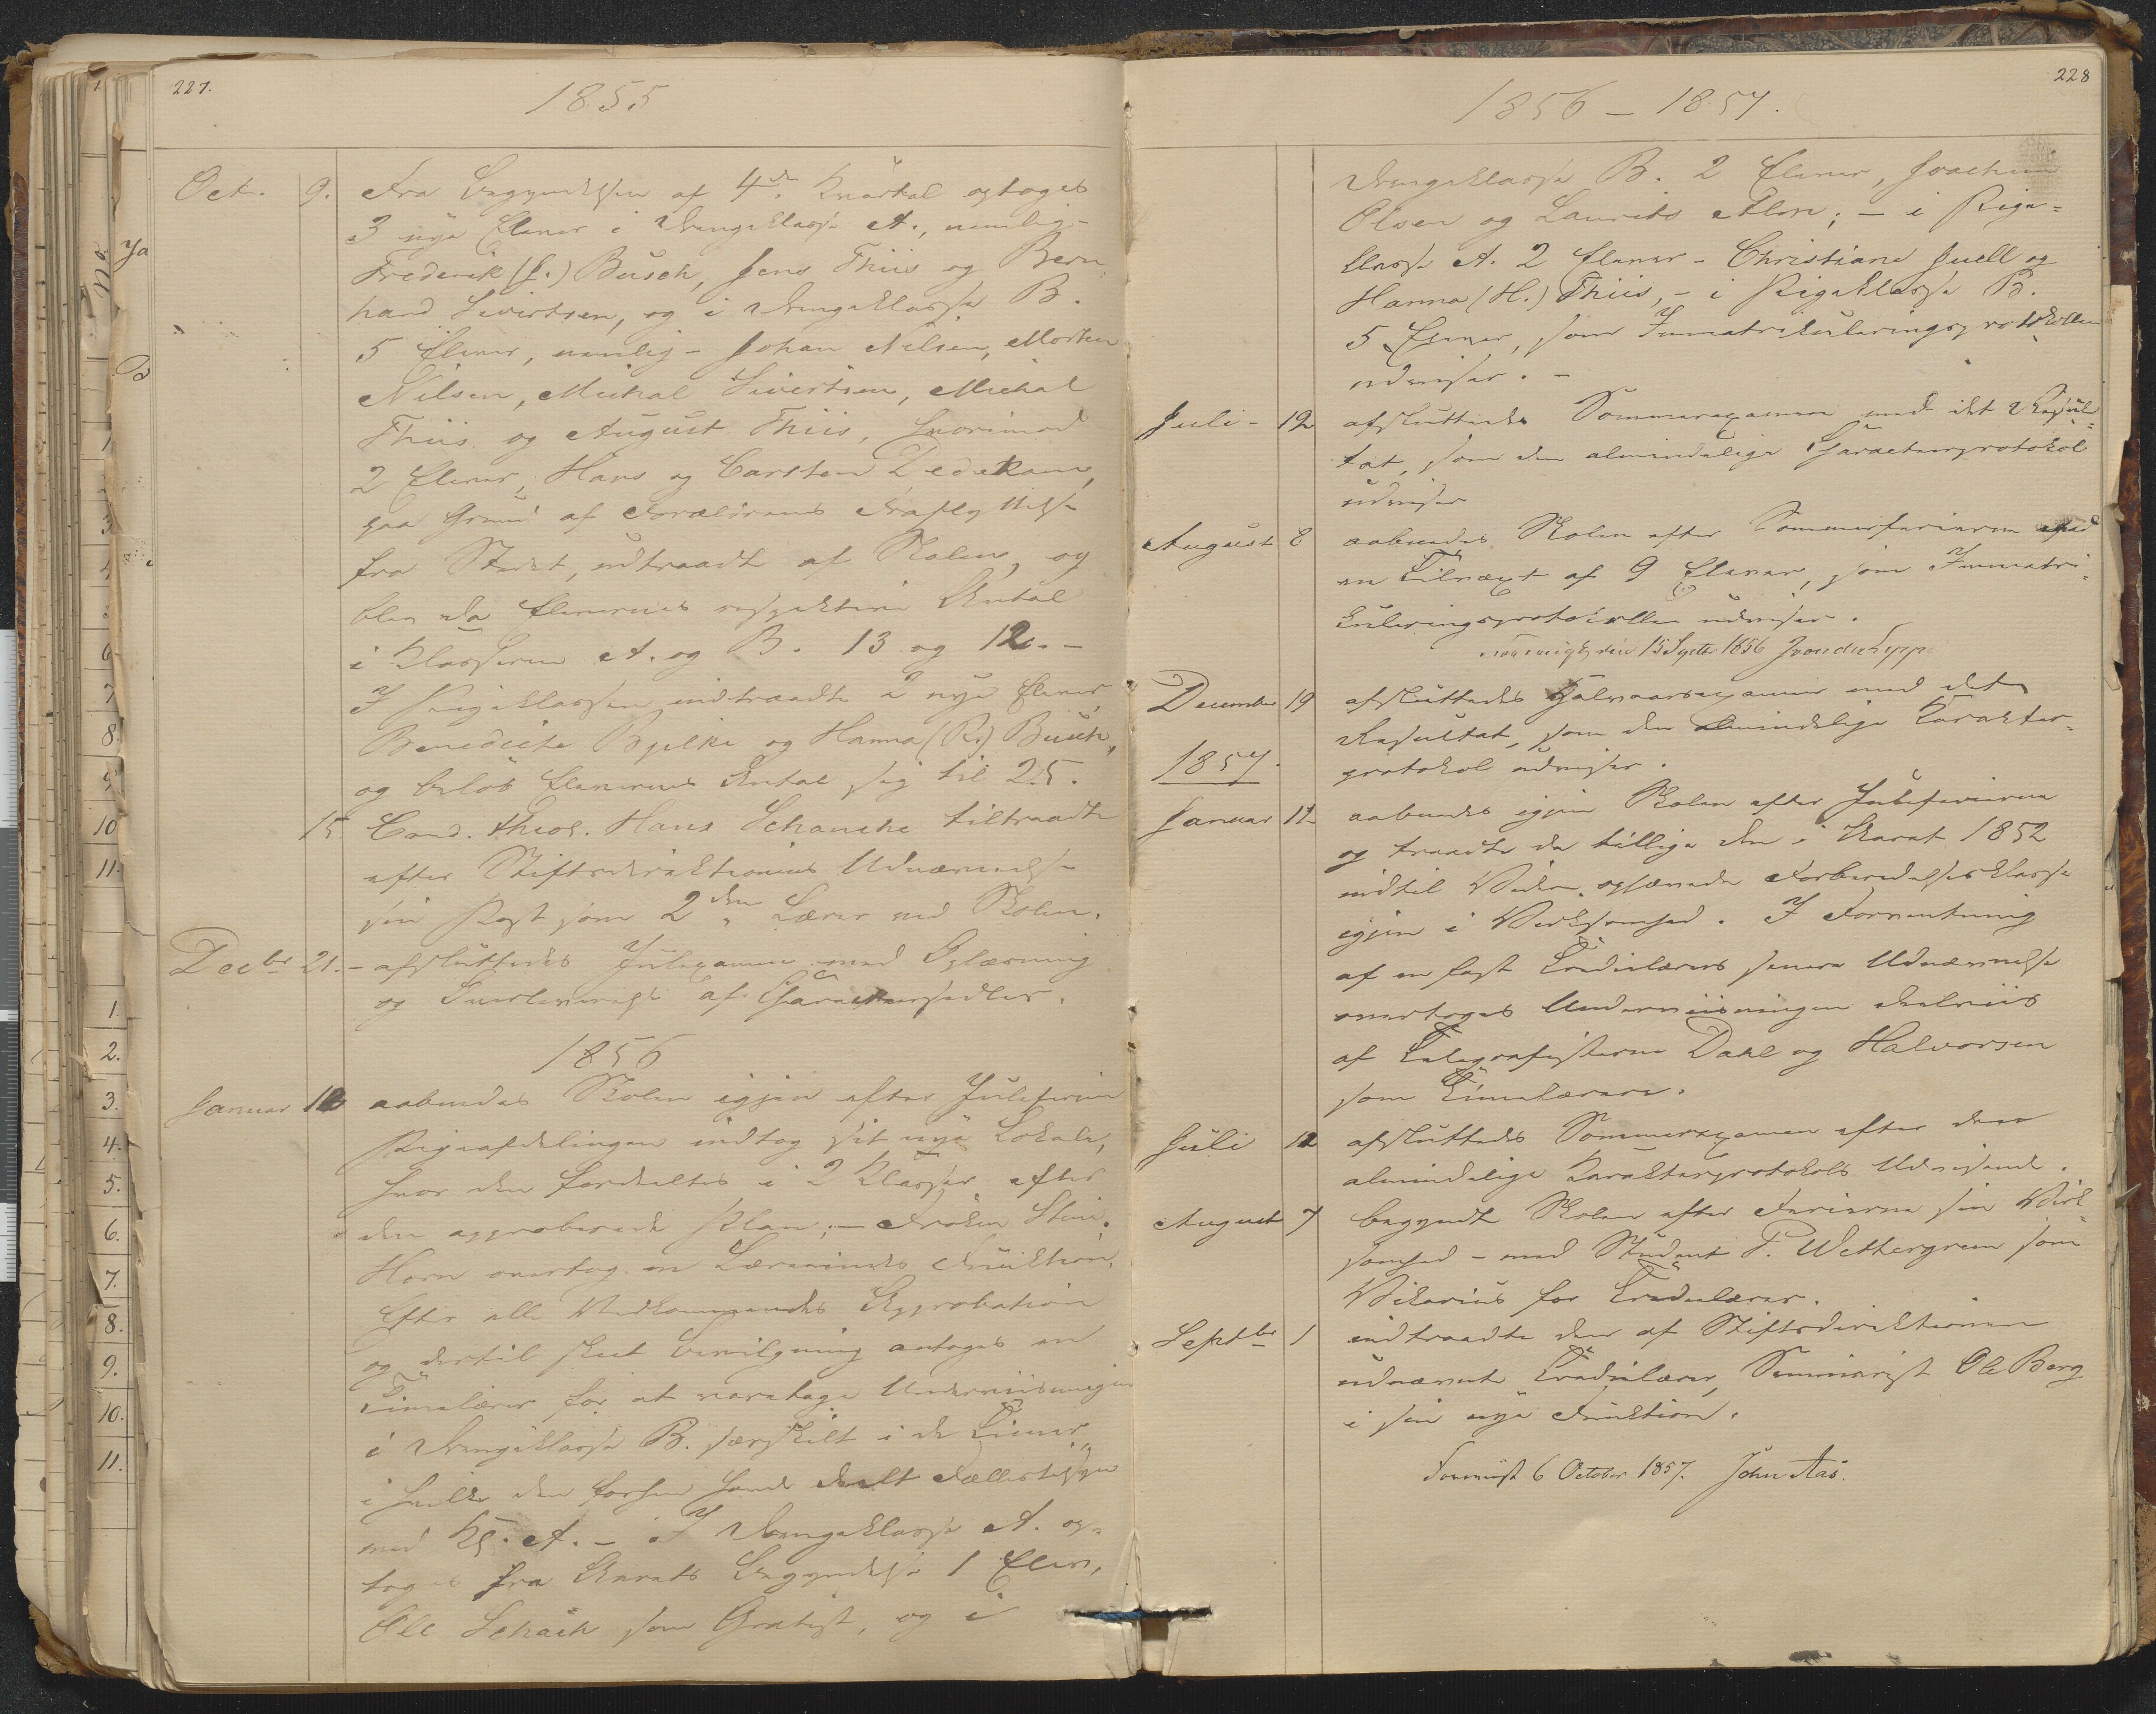 227.
1855
Oct. 9. Fra Begyndelsen af 4de Kvartal optoges
3 nye Elever i Drengeklasse A., nemlig -
Frederik (J.) Busch, Jens Thiis og Bern-
hard Sivertsen, og i Drengeklasse B.
5 Elever, nemlig - Johan Nilsen, Morten
Nilsen, Mickal Sivertsen, Mickal
Thiis og August Thiis, hvorimod
2 Elever, Hans og Carsten Dedekam,
paa Grund af Forældrenes Fraflyttelse
fra Stedet, udtraadte af Skolen, og
blev da Elevernes respektive Antal
i Klasserne A. og B. 13 og 12. -
I Pigeklassen indtraadte 2 nye Elever,
Benedicte Bjelke og Hanna (R.) Busch,
og beløb Elevernes Antal sig til 25.
15 Cand. theol. Hans Schanche tiltraadte
efter Stiftsdirektionens Udnævnelse
sin Post som 2den Lærer ved Skolen.
Decbr 21. - afsluttedes Juleexamen med Oplæsning
og Overleverelse af Characteersedler.
1856
Januar 10 aabnedes Skolen igjen efter Juleferien
Pigeafdelingen indtog sit nye Lokale,
hvor den fordeltes i 2 Klasser efter
den approberede Plan; - Frøken Stine
Horn overtog en Lærerindes Funktion.
Efter alle Vedkommendes Approbation
og dertil skeet Bevilgning antoges en
Timelærer for at varetage Underviisningen
i Drengeklasse B. særskilt i de Timer,
i hvilke den forhen havde deelt Fællesskab
med Kl. A. - I Drengeklasse A. op-
toges fra Aarets Begyndelse 1 Elev,
Ole Schach som Gratist, og i
228
1856 - 1857.
Drengeklasse B. 2 Elever, Joachim
Olsen og Laurits Alon; - i Pige-
klasse A. 2 Elever - Christiane Juell og
Hanna (H.) Thiis, - i Pigeklasse B.
5 Elever, som Immatrikuleringsprotokollen
udviser. -
Juli - 12 afsluttedes Sommerexamen med det Resul-
tat, som den almindelige Characteerprotokol
udviser
August 8 aabnedes Skolen efter Sommerferierne med
en Tilvæxt af 9 Elever, som Immatri-
kuleringsprotokollen udviser.
den 15 Septbr 1856
December 19 afsluttedes Halvaarsexamen med det
Resultat, som den almindelige Karakter-
protokol udviser.
1857.
Januar 11. aabnedes igjen Skolen efter Juleferierne
og traadte da tillige den i Aaret 1852
indtil Videre ophævede Forberedelsesklasse
igjen i Virksomhed. I Forventning
af en fast Tredielærers senere Udnævnelse
overtoges Underviisningen deelviis
af Telegrafisterne Dahl og Halvorsen
som Timelærere.
Juli 12 afsluttedes Sommerexamen efter den
almindelige Karakterprotokols Udvisende.
August 7 begyndte Skolen efter Ferierne sin Virk-
somhed - med Student P. Wettergreen som
Vikarius for Tredielærer.
Septbr 1 indtraadte den af Stiftsdirektionen
udnævnte Tredielærer, Seminarist Ole Berg
i sin nye Funktion.
Foreviist 6 October 1857. John Aas.